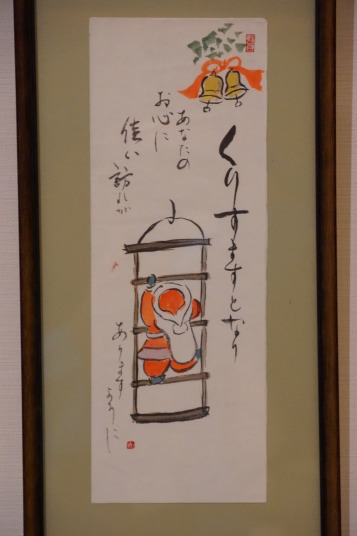 くりすますとなり
あなたの
お心に
佳い
訪れが
あります
ように